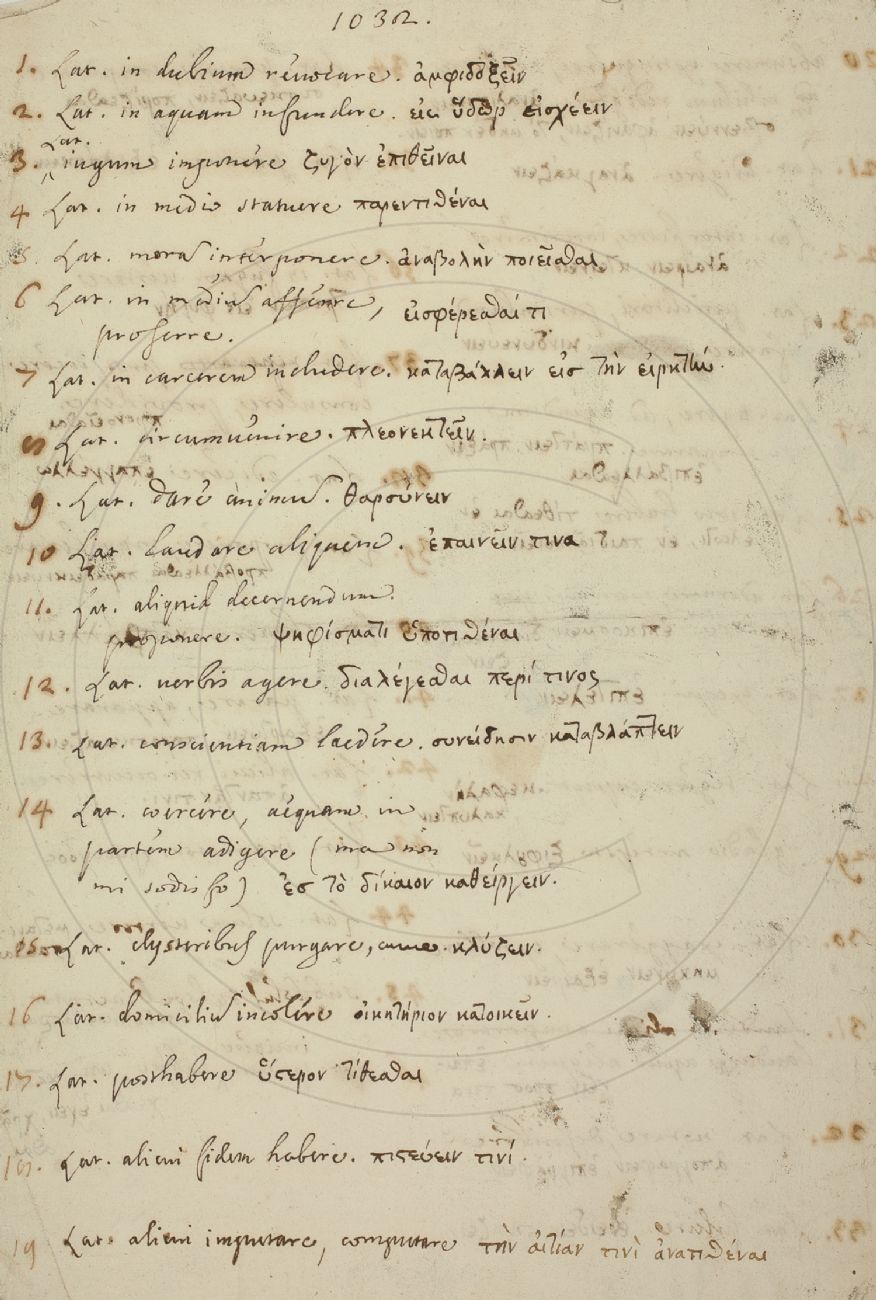 1032.
1. Lat. in dubium revocare. ἀμφιδοξεῖν
2. Lat. in aquam infundere. εἰς ὕδωρ εἰσχέειν
Lat.
3. iugum imponere ζυγὸν ἐπιθεῖναι
4 Lat. in medio statuere παρεντιθέναι
5. Lat. moram interponere. ἀναβολὴν ποιεῖσθαι
6 Lat. in mediũ afferre, εἰσφέρεσθαί τι
proferre.
7 Lat. in carcerem includere. καταβάλλειν εἰσ τὴν εἱρκτὴν.
8 Lat. circumvenire. πλεονεκτεῖν.
9. Lat. dare animũ. θαρσύνειν
10 Lat. laudare aliquem. ἐπαινεῖν τινα
11. Lat. aliquid decernendum
proponere. ψηφίσματι ὑποτιθέναι
12. Lat. verbis agere. διαλέγεσθαι περί τινος
13. Lat. conscientiam laedere. συνείδησιν καταβλάπτειν
14 Lat. coercere, aequam in
partem adigere (
) ἐσ τὸ δίκαιον καθείργειν.
15. Lat. clysteribus purgare, κλύζειν.
16 Lat. domiciliũ incolere οἰκητήριον κατοικεῖν.
17. Lat. posthabere ὕστερον τίθεσθαι
18. Lat. alicui fidem habere. πιστεύειν τινί.
19 Lat. alicui imputare, computare τὴν αἰτίαν τινὶ ἀνατιθέναι